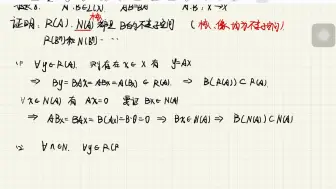 A, B ∈ L(X), AB=BA
核
证明: R(A), N(A) 都是 B的不变子空间 (核、像均为不变子空间)
R(B)和N(B) ⋯
(1) ∀y∈R(A), 则存在 x∈X 有 y=Ax
⇒ By=BAx=ABx=A(Bx)∈R(A) ⇒ B(R(A))⊂R(A)
∀x∈N(A) 有 Ax=0 要证 Bx∈N(A)
⇒ ABx=BAx=B(Ax)=B·θ=0 ⇒ Bx∈N(A) ⇒ B(N(A))⊂N(A)
(2) ∀n∈N, ∀y∈R(P